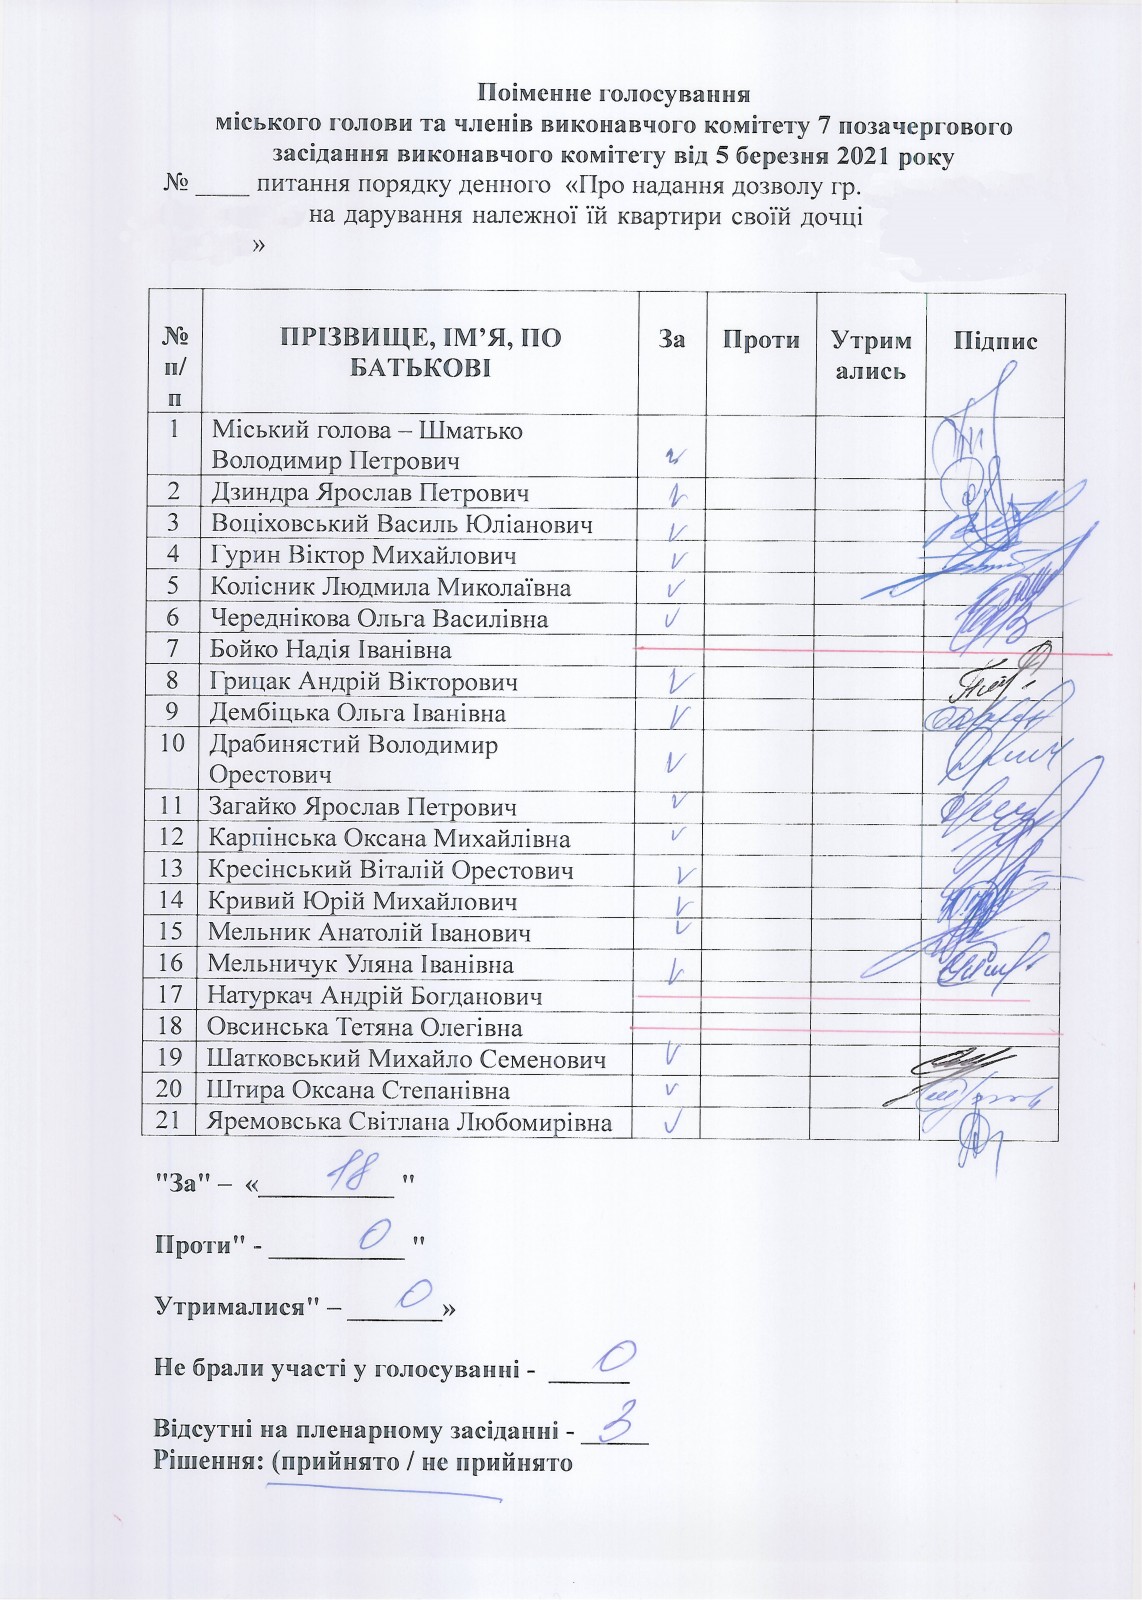 Поіменне голосування
міського голови та членів виконавчого комітету 7 позачергового
засідання виконавчого комітету від 5 березня 2021 року
№ ____ питання порядку денного «Про надання дозволу гр.
на дарування належної їй квартири своїй дочці
»
№ п/п ПРІЗВИЩЕ, ІМ’Я, ПО БАТЬКОВІ За Проти Утрим ались Підпис
1 Міський голова – Шматько
Володимир Петрович
2 Дзиндра Ярослав Петрович
3 Воціховський Василь Юліанович
4 Гурин Віктор Михайлович
5 Колісник Людмила Миколаївна
6 Череднікова Ольга Василівна
7 Бойко Надія Іванівна
8 Грицак Андрій Вікторович
9 Дембіцька Ольга Іванівна
10 Драбинястий Володимир
Орестович
11 Загайко Ярослав Петрович
12 Карпінська Оксана Михайлівна
13 Кресінський Віталій Орестович
14 Кривий Юрій Михайлович
15 Мельник Анатолій Іванович
16 Мельничук Уляна Іванівна
17 Натуркач Андрій Богданович
18 Овсинська Тетяна Олегівна
19 Шатковський Михайло Семенович
20 Штира Оксана Степанівна
21 Яремовська Світлана Любомирівна
"За" – «____18____ "
Проти" - ____0____ "
Утрималися" – ____0____»
Не брали участі у голосуванні - ____0____
Відсутні на пленарному засіданні - ____3____
Рішення: (прийнято / не прийнято